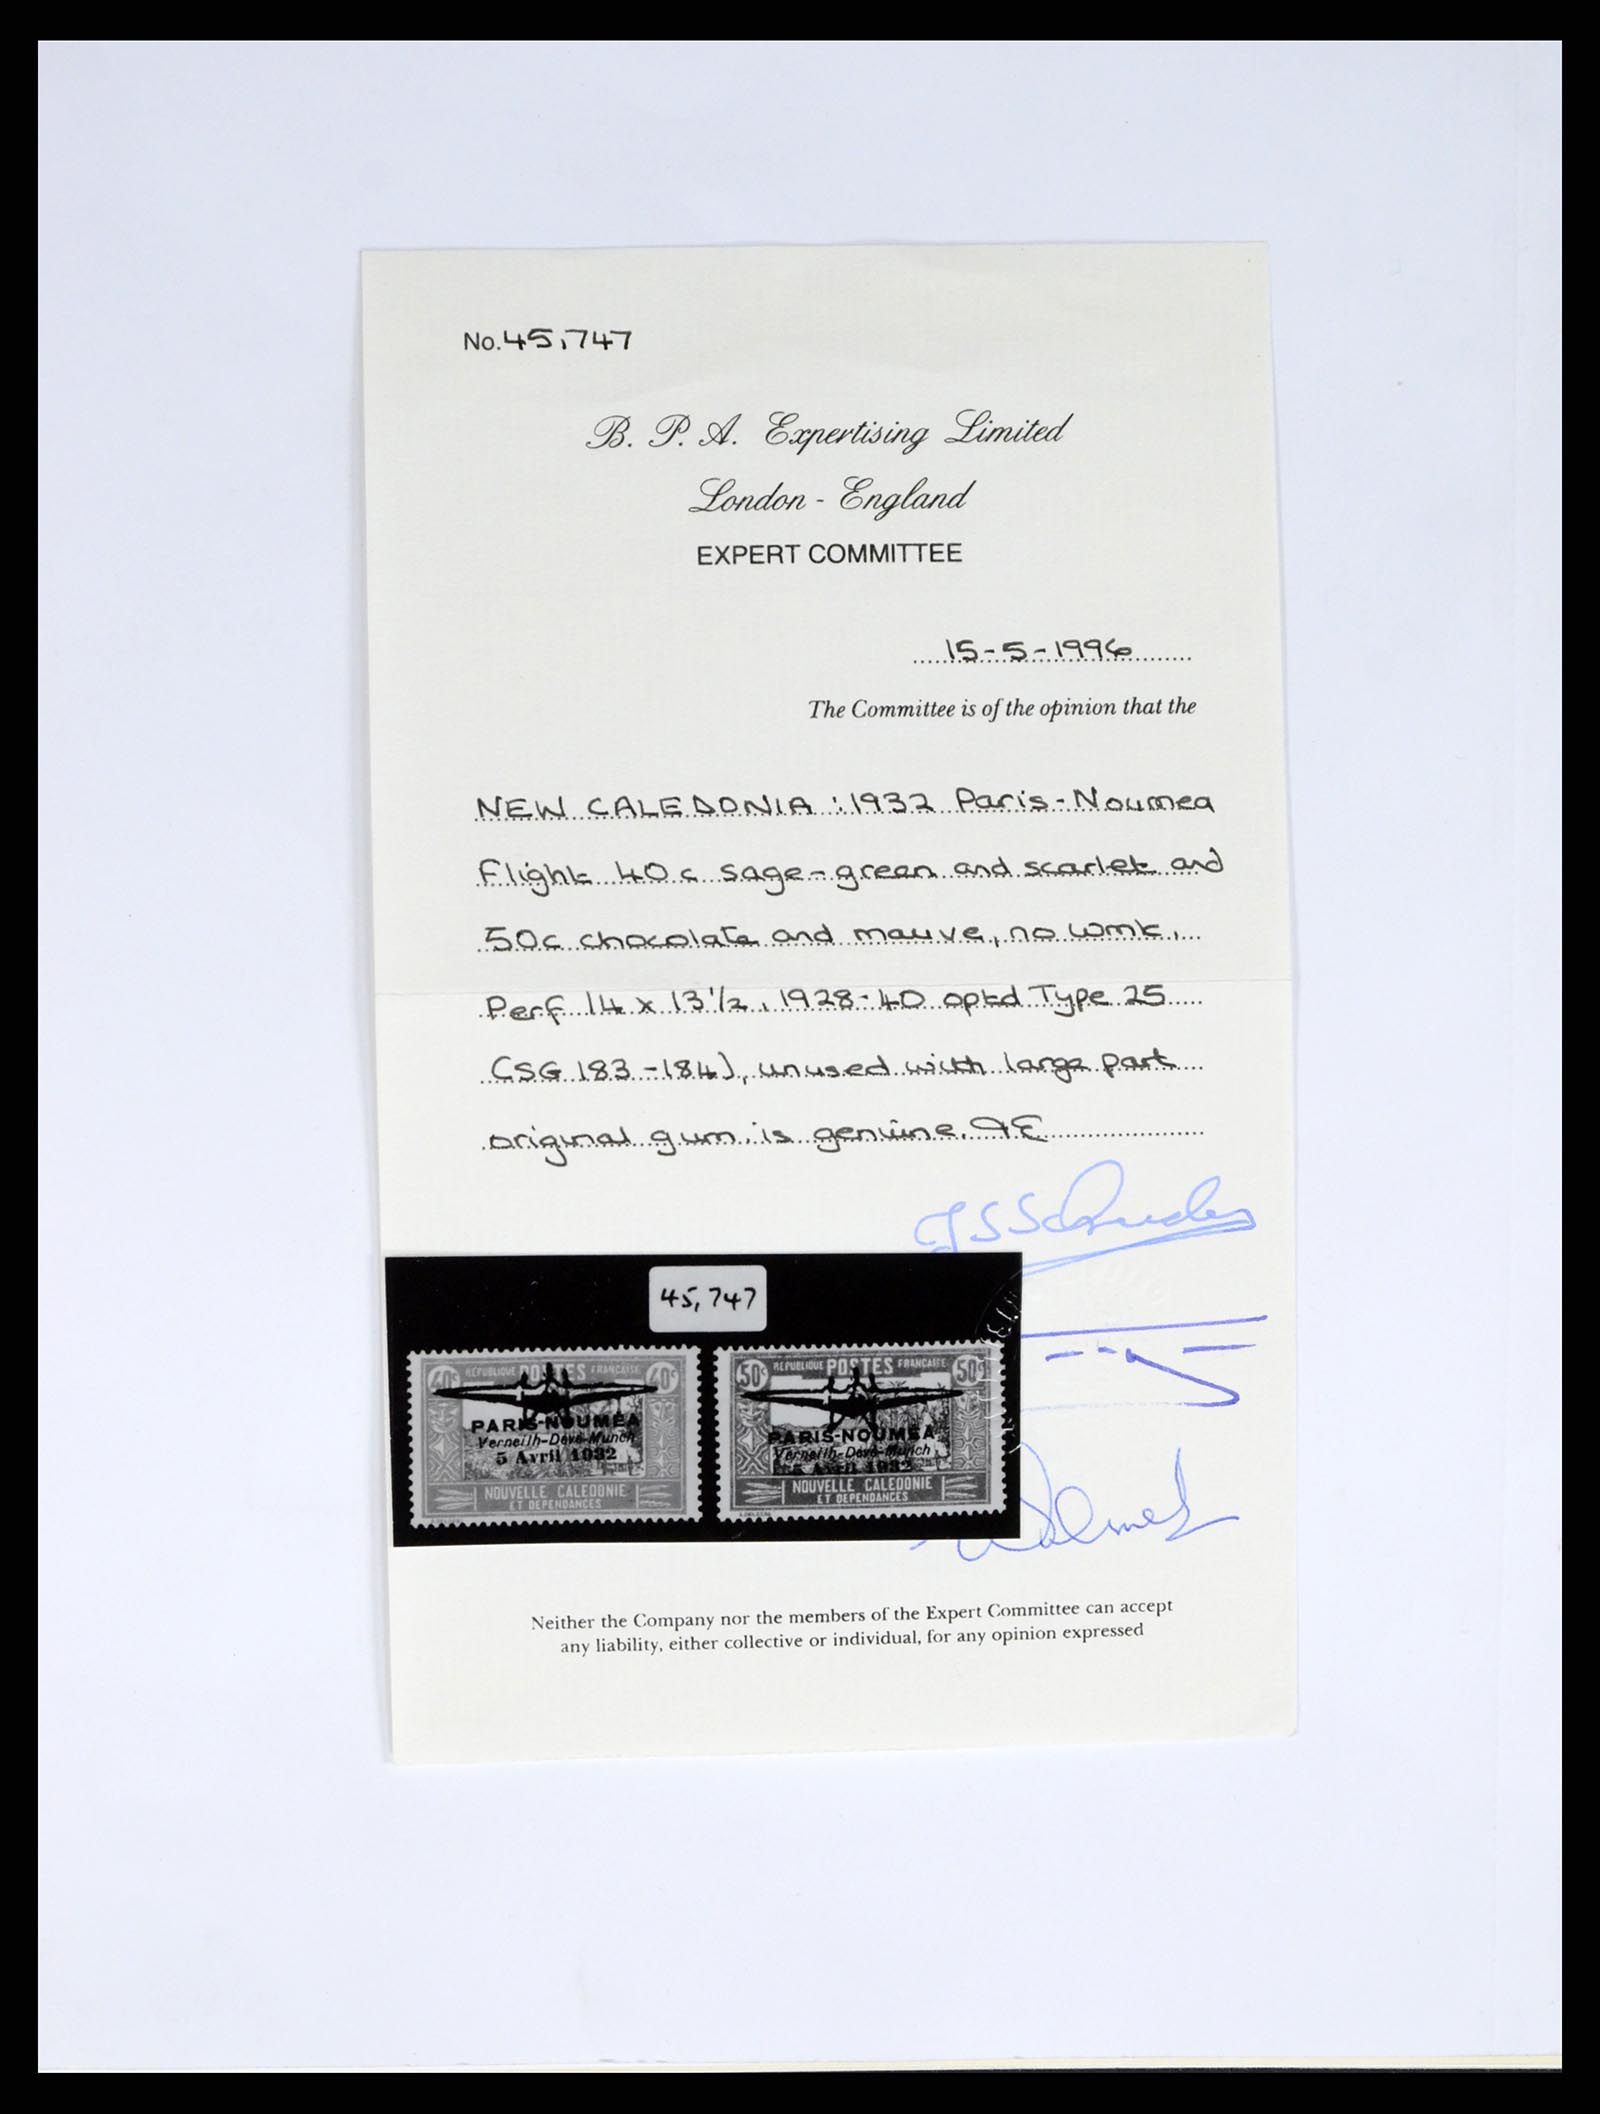 No. 45,747
B. P. A. Expertising Limited
London - England
EXPERT COMMITTEE
15-5-1996
The Committee is of the opinion that the
NEW CALEDONIA : 1932 Paris-Noumea
Flight 40c sage-green and scarlet and
50c chocolate and mauve, no wmk,
Perf 14 x 13½, 1928-40 optd Type 25
(SG 183-184), unused with large part
original gum, is genuine.
45,747
40c REPUBLIQUE POSTES FRANCAISE 40c
PARIS-NOUMÉA
Verneilh-Devé-Munch
5 Avril 1932
NOUVELLE CALEDONIE
ET DEPENDANCES
50c REPUBLIQUE POSTES FRANCAISE 50c
PARIS-NOUMÉA
Verneilh-Devé-Munch
5 Avril 1932
NOUVELLE CALEDONIE
ET DEPENDANCES
Neither the Company nor the members of the Expert Committee can accept
any liability, either collective or individual, for any opinion expressed